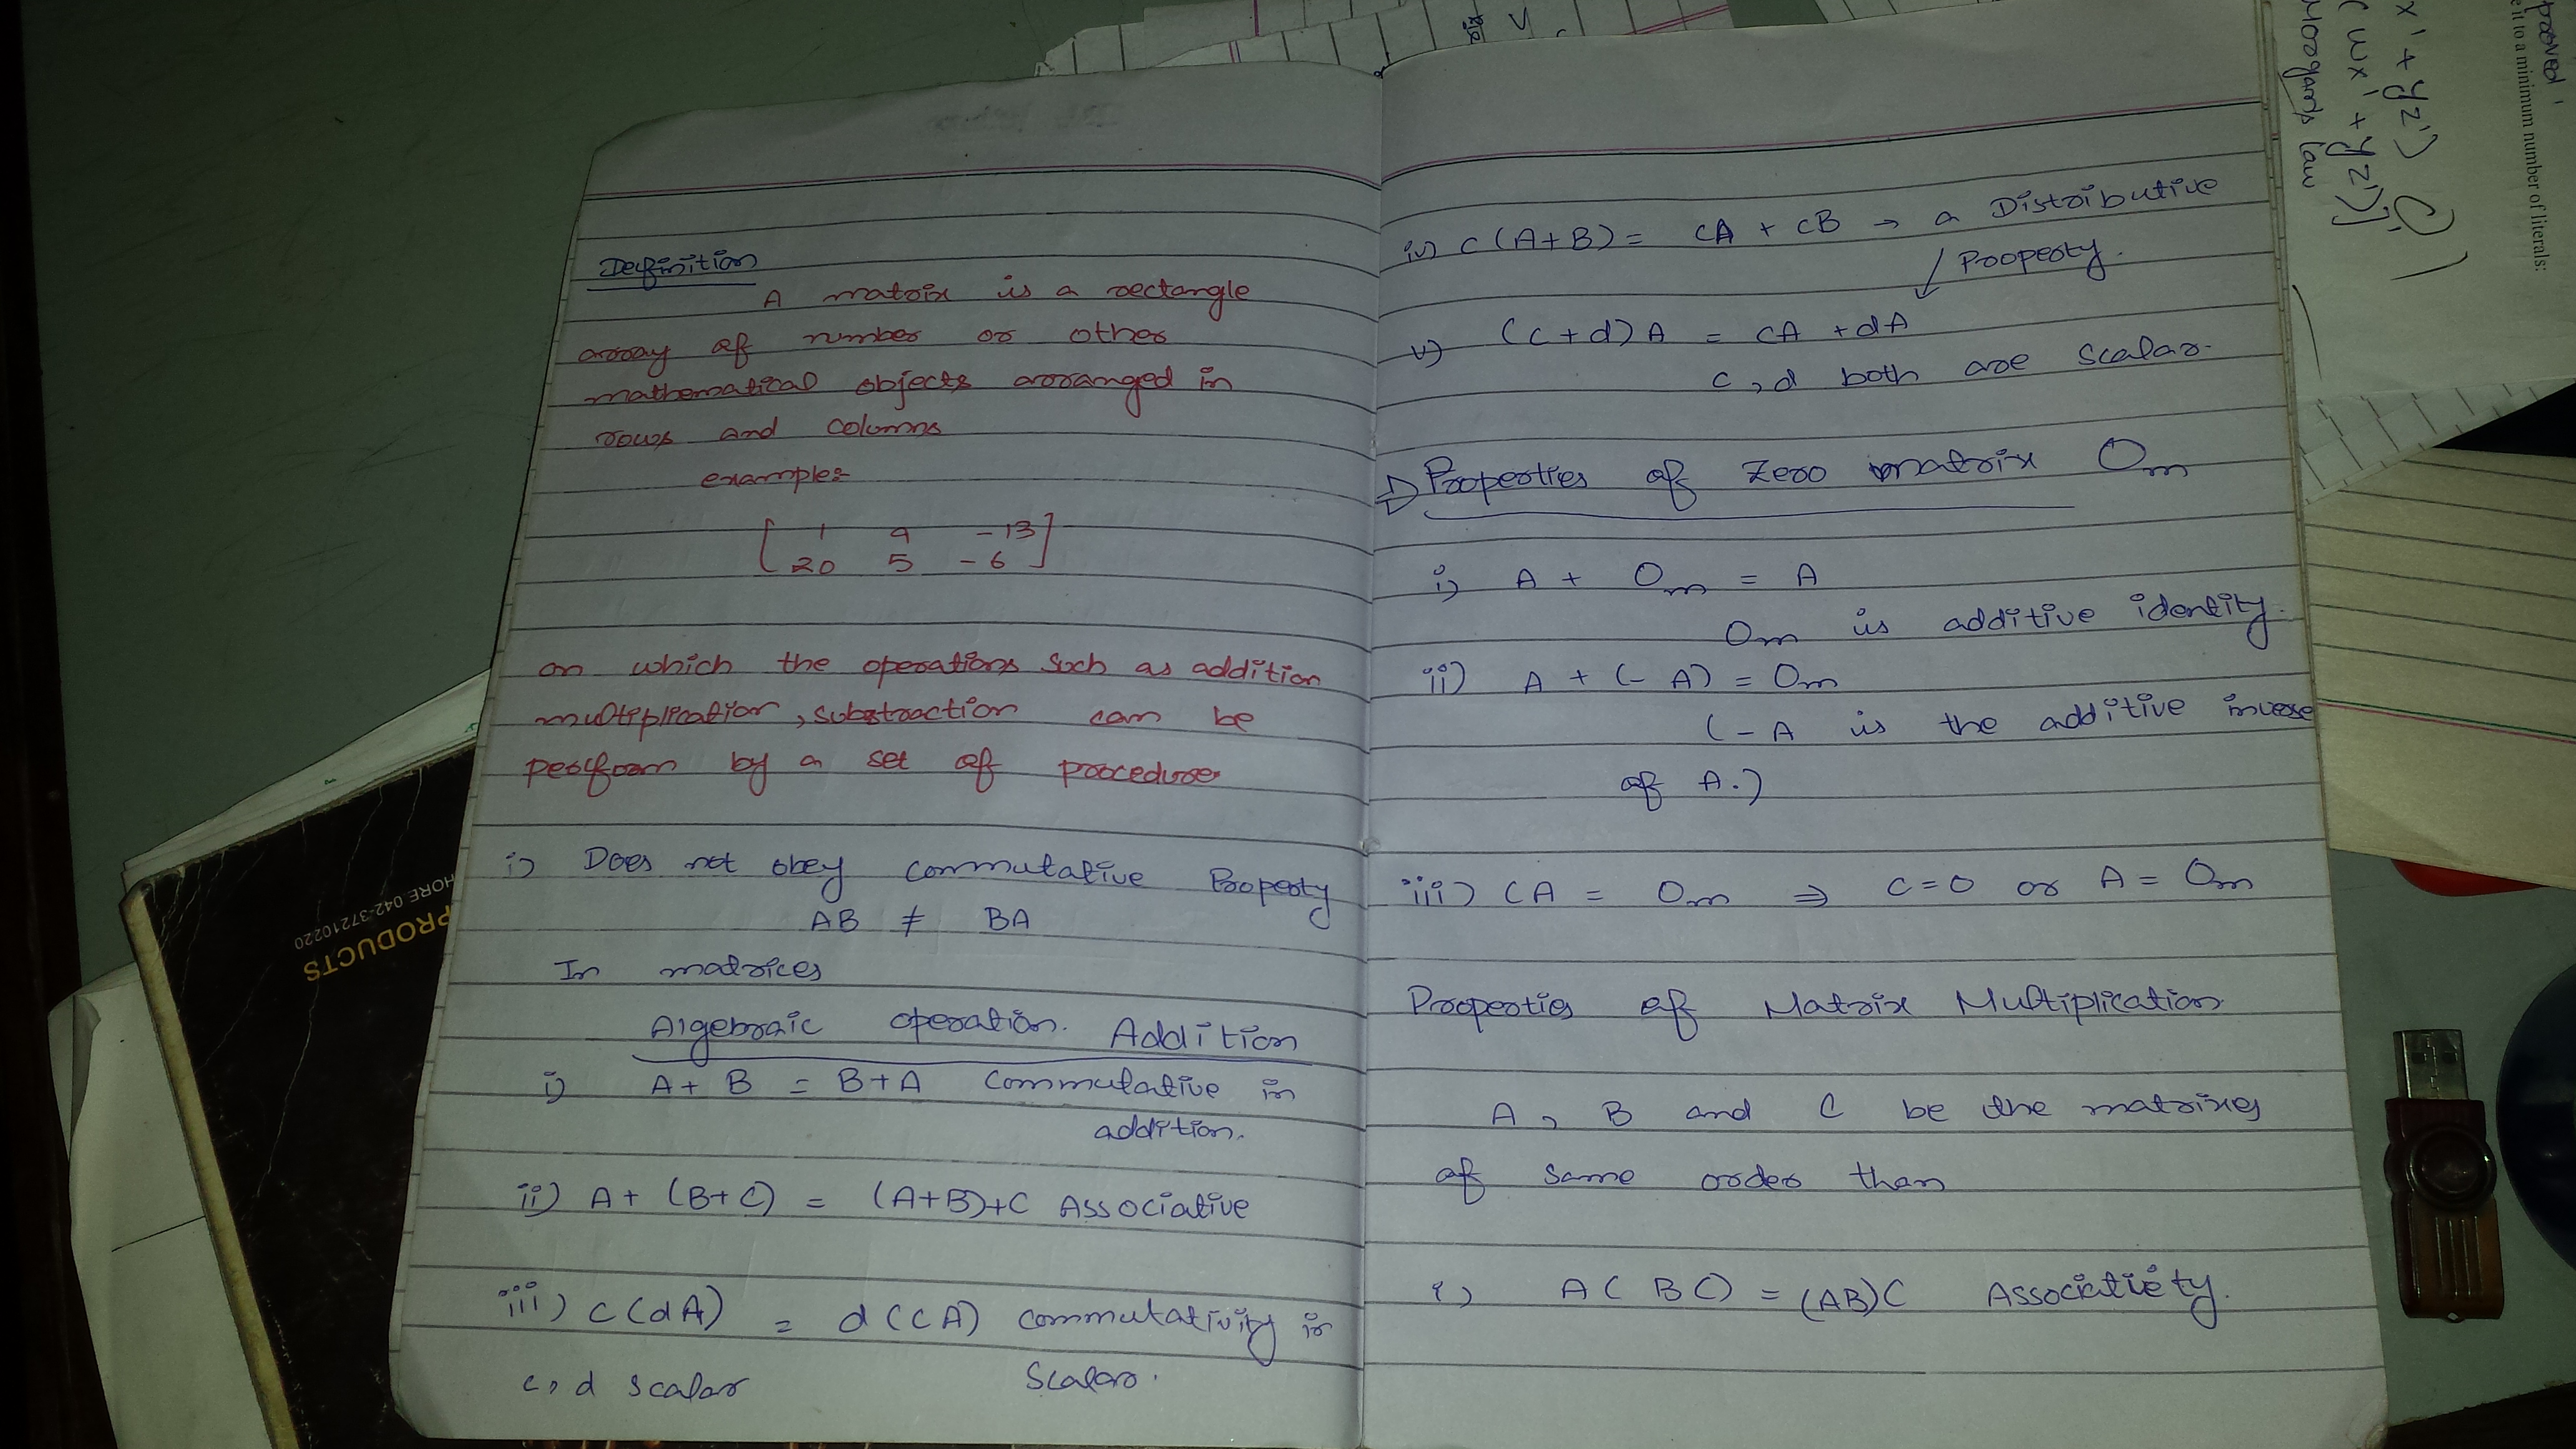 Definition
A matrix is a rectangle
array of number or other
mathematical objects arranged in
rows and columns
example:-
[ 1 9 -13 ]
[ 20 5 -6 ]
on which the operations such as addition
multiplication, substraction can be
perform by a set of procedure
i) Does not obey commutative Property
AB ≠ BA
In matrices
Algebraic operation. Addition
i) A + B = B+A commutative in
addition.
ii) A + (B+C) = (A+B)+C Associative
iii) c(dA) = d(cA) commutativity in
c, d scalar scalar.
iv) c(A+B) = cA + cB → a Distributive
Property.
v) (c+d)A = cA + dA
c, d both are scalar.
⇒ Properties of Zero matrix Om
i) A + Om = A
Om is additive identity.
ii) A + (-A) = Om
(-A is the additive inverse
of A.)
iii) CA = Om ⇒ c=0 or A = Om
Properties of Matrix Multiplication
A, B and C be the matrixes
of same order than
i) A(BC) = (AB)C Associatiety.
proved
e it to a minimum number of literals:
x' + yz')
(wx' + yz')]
Morgan's law
PRODUCTS
HORE 042-37210220